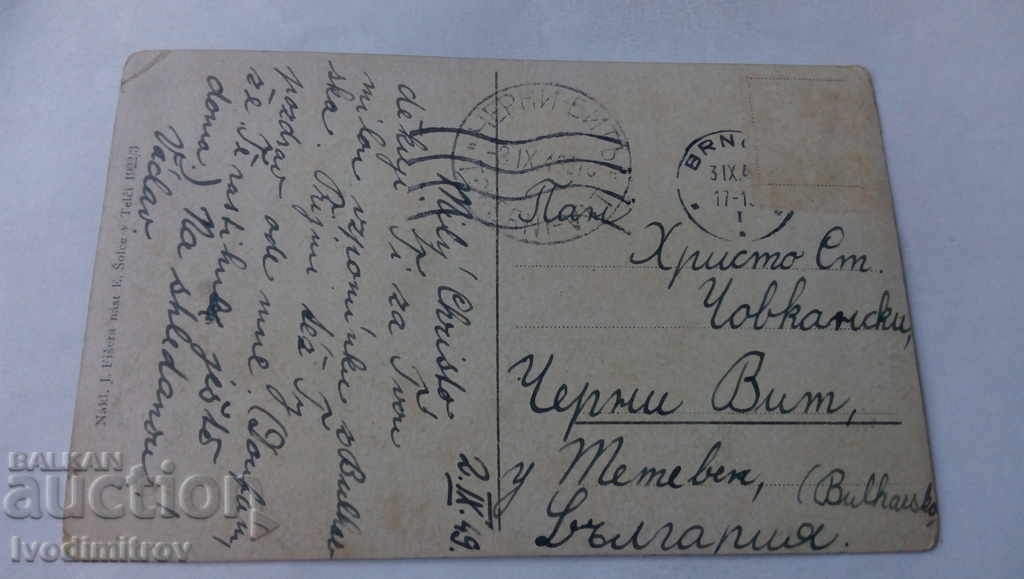 Milý Christo 2.IX.49.
děkuji Ti za Tvou
milou vzpomínku z Bulhar
ska. Přijmi též Ty
pozdrav ode mne. (Doufám,
že Tě zastihne ještě
doma.) Na shledanou!
Václav
Nákl. J. Fišera nást. E. Šolc v Telči 1922/3
ЧЕРНИ-ВИТЪ
IX
BRN
3 IX
17-1
I
Пан
Христо Ст.
Човкански,
Черни Вит,
у Тетевен,
(Bulharsko)
България.
BALKAN
auction
Ivodimitrov